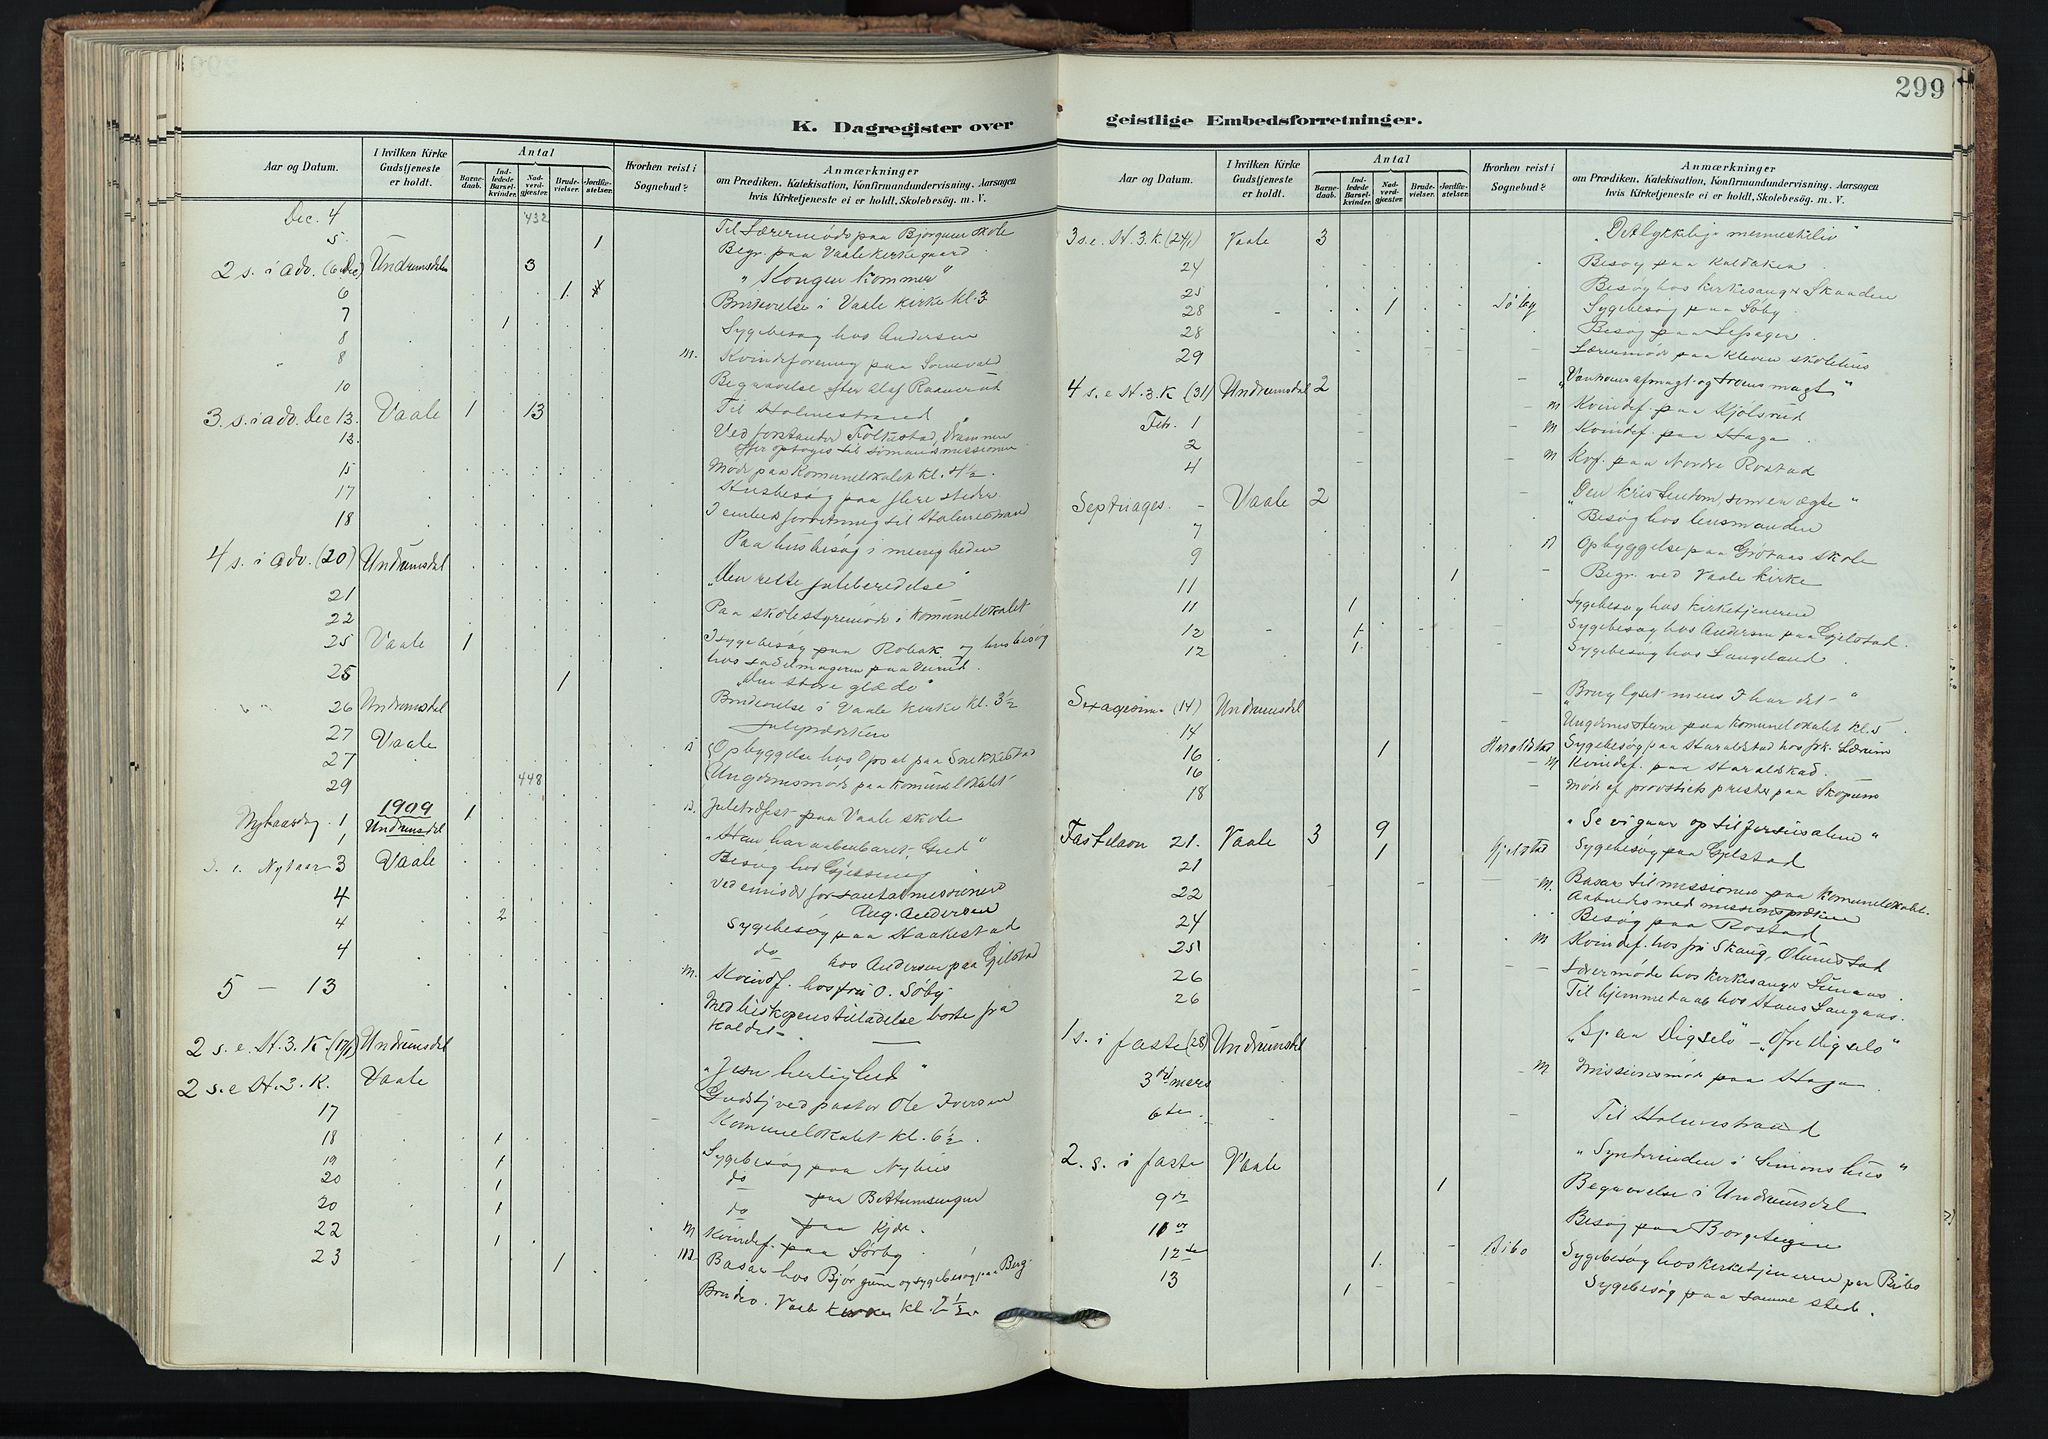 299
K. Dagregister over
geistlige Embedsforretninger.
Aar og Datum.
I hvilken Kirke Gudstjeneste er holdt.
Antal
Barnedaab.
Indledede Barselkvinder.
Nadverdgjester.
Brudevielser.
Jordfæstelser.
Hvorhen reist i Sognebud?
Anmærkninger
om Prædiken, Katekisation, Konfirmandundervisning, Aarsagen
hvis Kirketjeneste ei er holdt, Skolebesøg. m. V.
Dec. 4 432 Til Lærermøde paa Bjørgum skole
5. 1 Begr. paa Vaale kirkegaard
2 s. i adv. (6 Dec) Undrumsdal 3 "Kongen kommer"
6 1 Brudevielse i Vaale kirke kl. 3
7 1 Sygebesøg hos Andersen
8 M. Kvindeforening paa
8 Begravelse efter Olaf
10 Til Holmestrand
3. s. i adv. Dec 13. Vaale 1 13 Ved forstander Drammen
13. Offer optoges til sømandsmissionen
15 Møde paa Komunelokalet kl. 4½.
17 Husbesøg paa flere steder
18 I embedsforretning til Holmestrand
4 s. i adv. (20) Undrumsdal Paa husbesøg i menigheden
21 "Den rette juleberedelse"
22 Paa skolestyremøde i komunelokalet
25 Vaale 1 I sygebesøg paa Robak og husbesøg
hos sadelmageren paa
25 1 "Den store glæde"
26 Undrumsdal Brudevielse i Vaale kirke kl. 3½
27 Vaale Juleprædiken
27 Opbyggelse hos Opsal paa Snekkestad
29 448 Ungdomsmøde paa komunelokalet
1909
Nytaarsdag 1 Undrumsdal 1 Juletræfest paa Vaale skole
1 "Han har aabenbaret Gud"
S. e. Nytaar 3 Vaale Besøg hos Gjessing
4 Ved emisær for santalmissionen
Aug. Andersen
4 2 Sygebesøg paa Haakestad
4 do hos Andersen paa Gjelstad
5 — 13 M. Kvindf. hos fru O. Søby
Med biskopens tilladelse borte fra
kaldet
2 s. e. H. 3. K. (17/1) Undrumsdal "Jesu herlighed"
2 s. e H. 3. K. Vaale Gudstj ved pastor Ole Iversen
17 Komunelokalet kl. 6½.
18 1 Sygebesøg paa Nyhus
19 1 do paa
20 1 do paa Kjær.
20 1
22 1 M Kvindef. paa Sørby
23 1 M. Basar hos Bjørgum og sygebesøg paa Berg
Brudev. Vaale kirke kl.
Aar og Datum.
I hvilken Kirke Gudstjeneste er holdt.
Antal
Barnedaab.
Indledede Barselkvinder.
Nadverdgjester.
Brudevielser.
Jordfæstelser.
Hvorhen reist i Sognebud?
Anmærkninger
om Prædiken, Katekisation, Konfirmandundervisning, Aarsagen
hvis Kirketjeneste ei er holdt, Skolebesøg. m. V.
3 s. e. H. 3. K. (24/1) Vaale 3 "Det lykkelige menneskeliv"
24 Besøg paa
25 Besøg hos kirkesanger Skaaden
28 1 Søby Sygebesøg paa Søby
28 Besøg paa
29 Lærermøde paa Kleven skolehus
4 s. e H. 3. K (31) Undrumsdal 2 "Vantroens afmagt og troens magt"
Feb. 1 M Kvindef. paa Kjølsrud
2 M Kvindef. paa Haga
4 M Kvf. paa Nordre Rostad
Septuages. Vaale 2 "Den kristendom, som er ægte"
7 Besøg hos lensmanden
9 Opbyggelse paa skole
11 1 Begr. ved Vaale kirke
11 1 Sygebesøg hos kirketjeneren
12 1 Sygebesøg hos Andersen paa Gjelstad.
12 1 Sygebesøg hos Langeland
Sexagesima (14) Undrumsdal "Brug lyset mens I har det"
14 Ungdomsstevne paa Komunelokalet kl. 5
16 1 Haraldstad Sygebesøg paa Haraldstad hos frk. Lærum
16 M Kvindef. paa Haraldstad.
18 Møde af provstiets prester paa Skopum
Fastelavn 21. Vaale 3 9 "Se vi gaar op til Jerusalem"
21 1 Gjelstad Sygebesøg paa Gjelstad
22 M. Basar til missionen paa Komunelokalet.
Aabnedes med missionsprædiken
24 Besøg paa Rostad
25 M Kvindef. hos fru Skaug,
26 Lærermøde hos kirkesanger
26 Til hjemmedaab hos Hans
1 s. i faste (28) Undrumsdal
3die mars M Missionsmøde paa Haga
6te. Til Holmestrand
2. s. i faste Vaale "Synderinden i Simons hus"
9de 1 Begravelse i Undrumsdal
10de Besøg paa Borgeteigen
12te 1 Bibo Sygebesøg hos kirketjeneren paa Bibo
13 1 Sygebesøg paa samme sted.